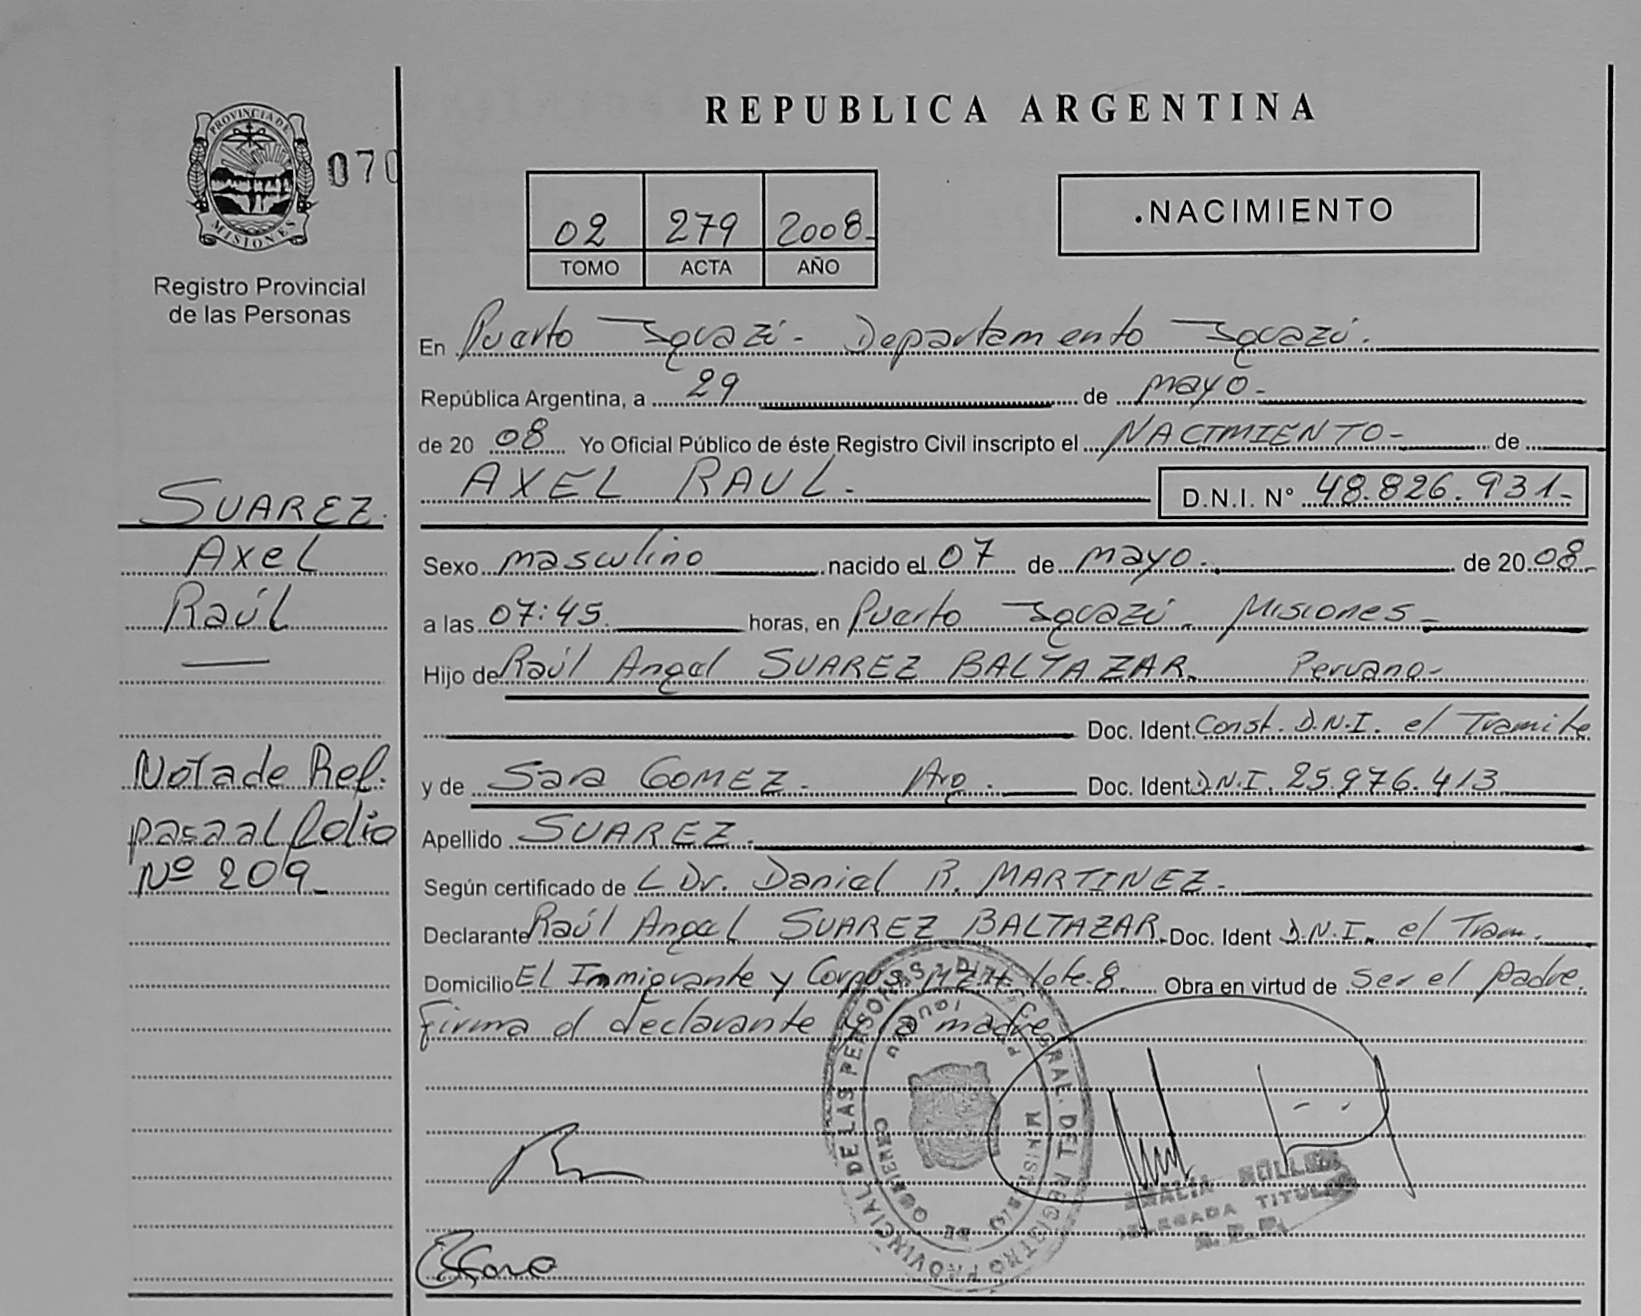 REPUBLICA ARGENTINA
PROVINCIA DE
MISIONES
070
Registro Provincial
de las Personas
02 279 2008-
TOMO ACTA AÑO
.NACIMIENTO
En Puerto Iguazú - Departamento Iguazú.
República Argentina, a 29 de mayo-
de 20 08 Yo Oficial Público de éste Registro Civil inscripto el NACIMIENTO- de
AXEL RAUL- D.N.I. N° 48.826.931-
Sexo masculino nacido el 07 de mayo-. de 20 08-
a las 07:45 horas, en Puerto Iguazú - Misiones -
Hijo de Raúl Angel SUAREZ BALTAZAR. Peruano-
Doc. Ident. Const. D.N.I. el Tramite
y de Sara GOMEZ- Arg. Doc. Ident. D.N.I. 25.976.413
Apellido SUAREZ.
Según certificado de L Dr. Daniel R. MARTINEZ-
Declarante Raúl Angel SUAREZ BALTAZAR. Doc. Ident D.N.I. el Tram.
Domicilio El Inmigrante y Corpus lote 8. Obra en virtud de ser el padre.
firma el declarante y la madre
SUAREZ.
Axel
Raúl
Nota de Ref.
pasa al folio
Nº 209-
DEL REGISTRO PROVINCIAL DE LAS PERSONAS
MINISTERIO DE GOBIERNO
DELEGADA TITULAR